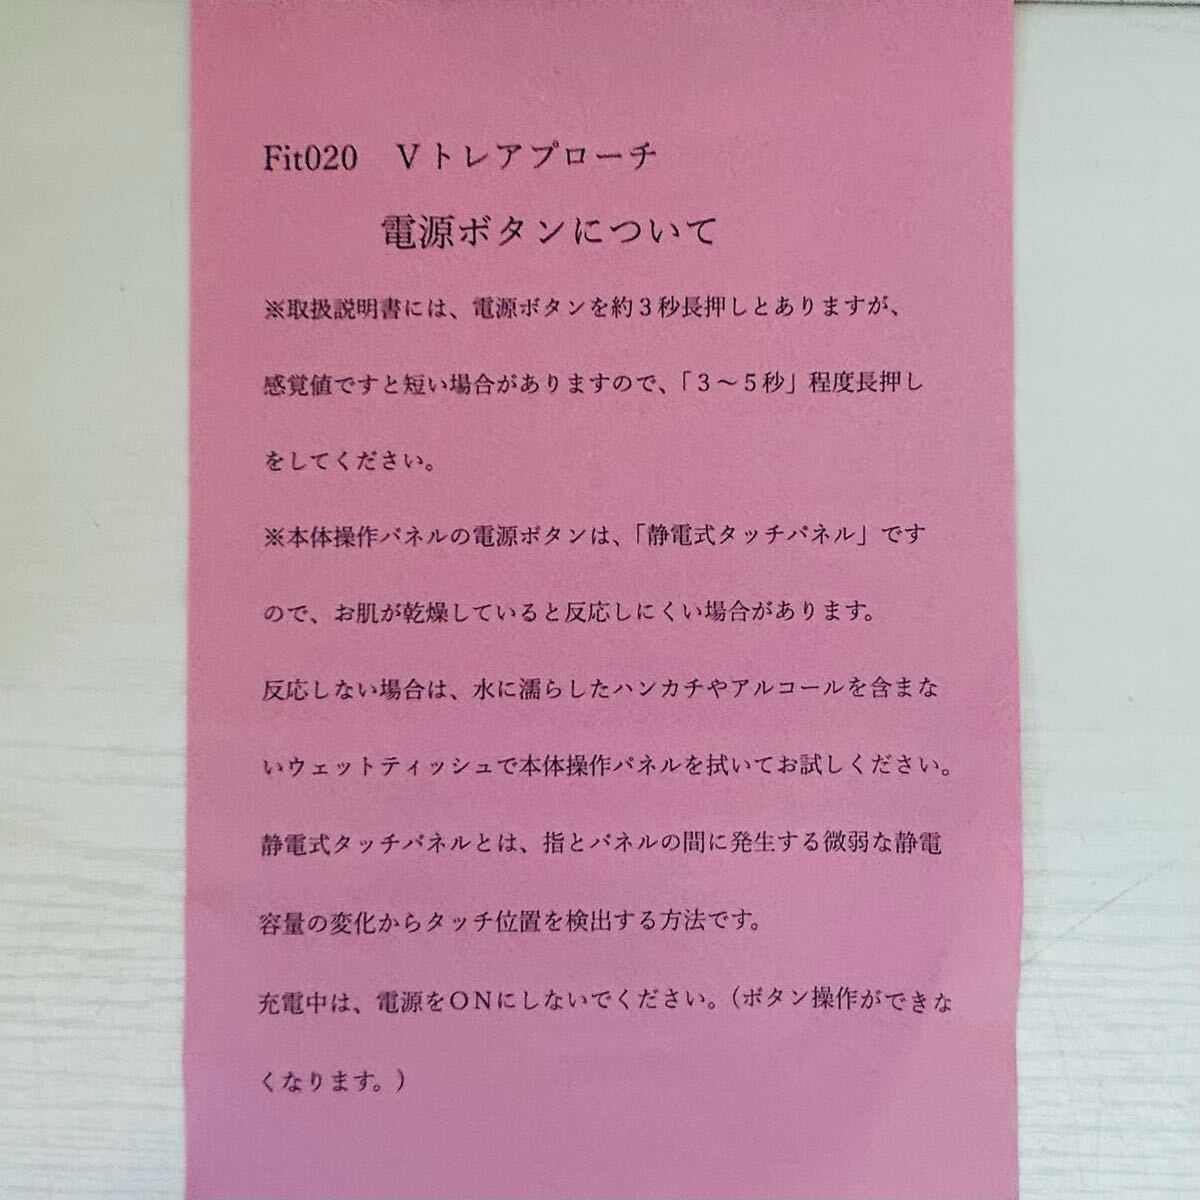 Fit020　Ｖトレアプローチ
電源ボタンについて
※取扱説明書には、電源ボタンを約３秒長押しとありますが、
感覚値ですと短い場合がありますので、「３～５秒」程度長押し
をしてください。
※本体操作パネルの電源ボタンは、「静電式タッチパネル」です
ので、お肌が乾燥していると反応しにくい場合があります。
反応しない場合は、水に濡らしたハンカチやアルコールを含まな
いウェットティッシュで本体操作パネルを拭いてお試しください。
静電式タッチパネルとは、指とパネルの間に発生する微弱な静電
容量の変化からタッチ位置を検出する方法です。
充電中は、電源をＯＮにしないでください。（ボタン操作ができな
くなります。）